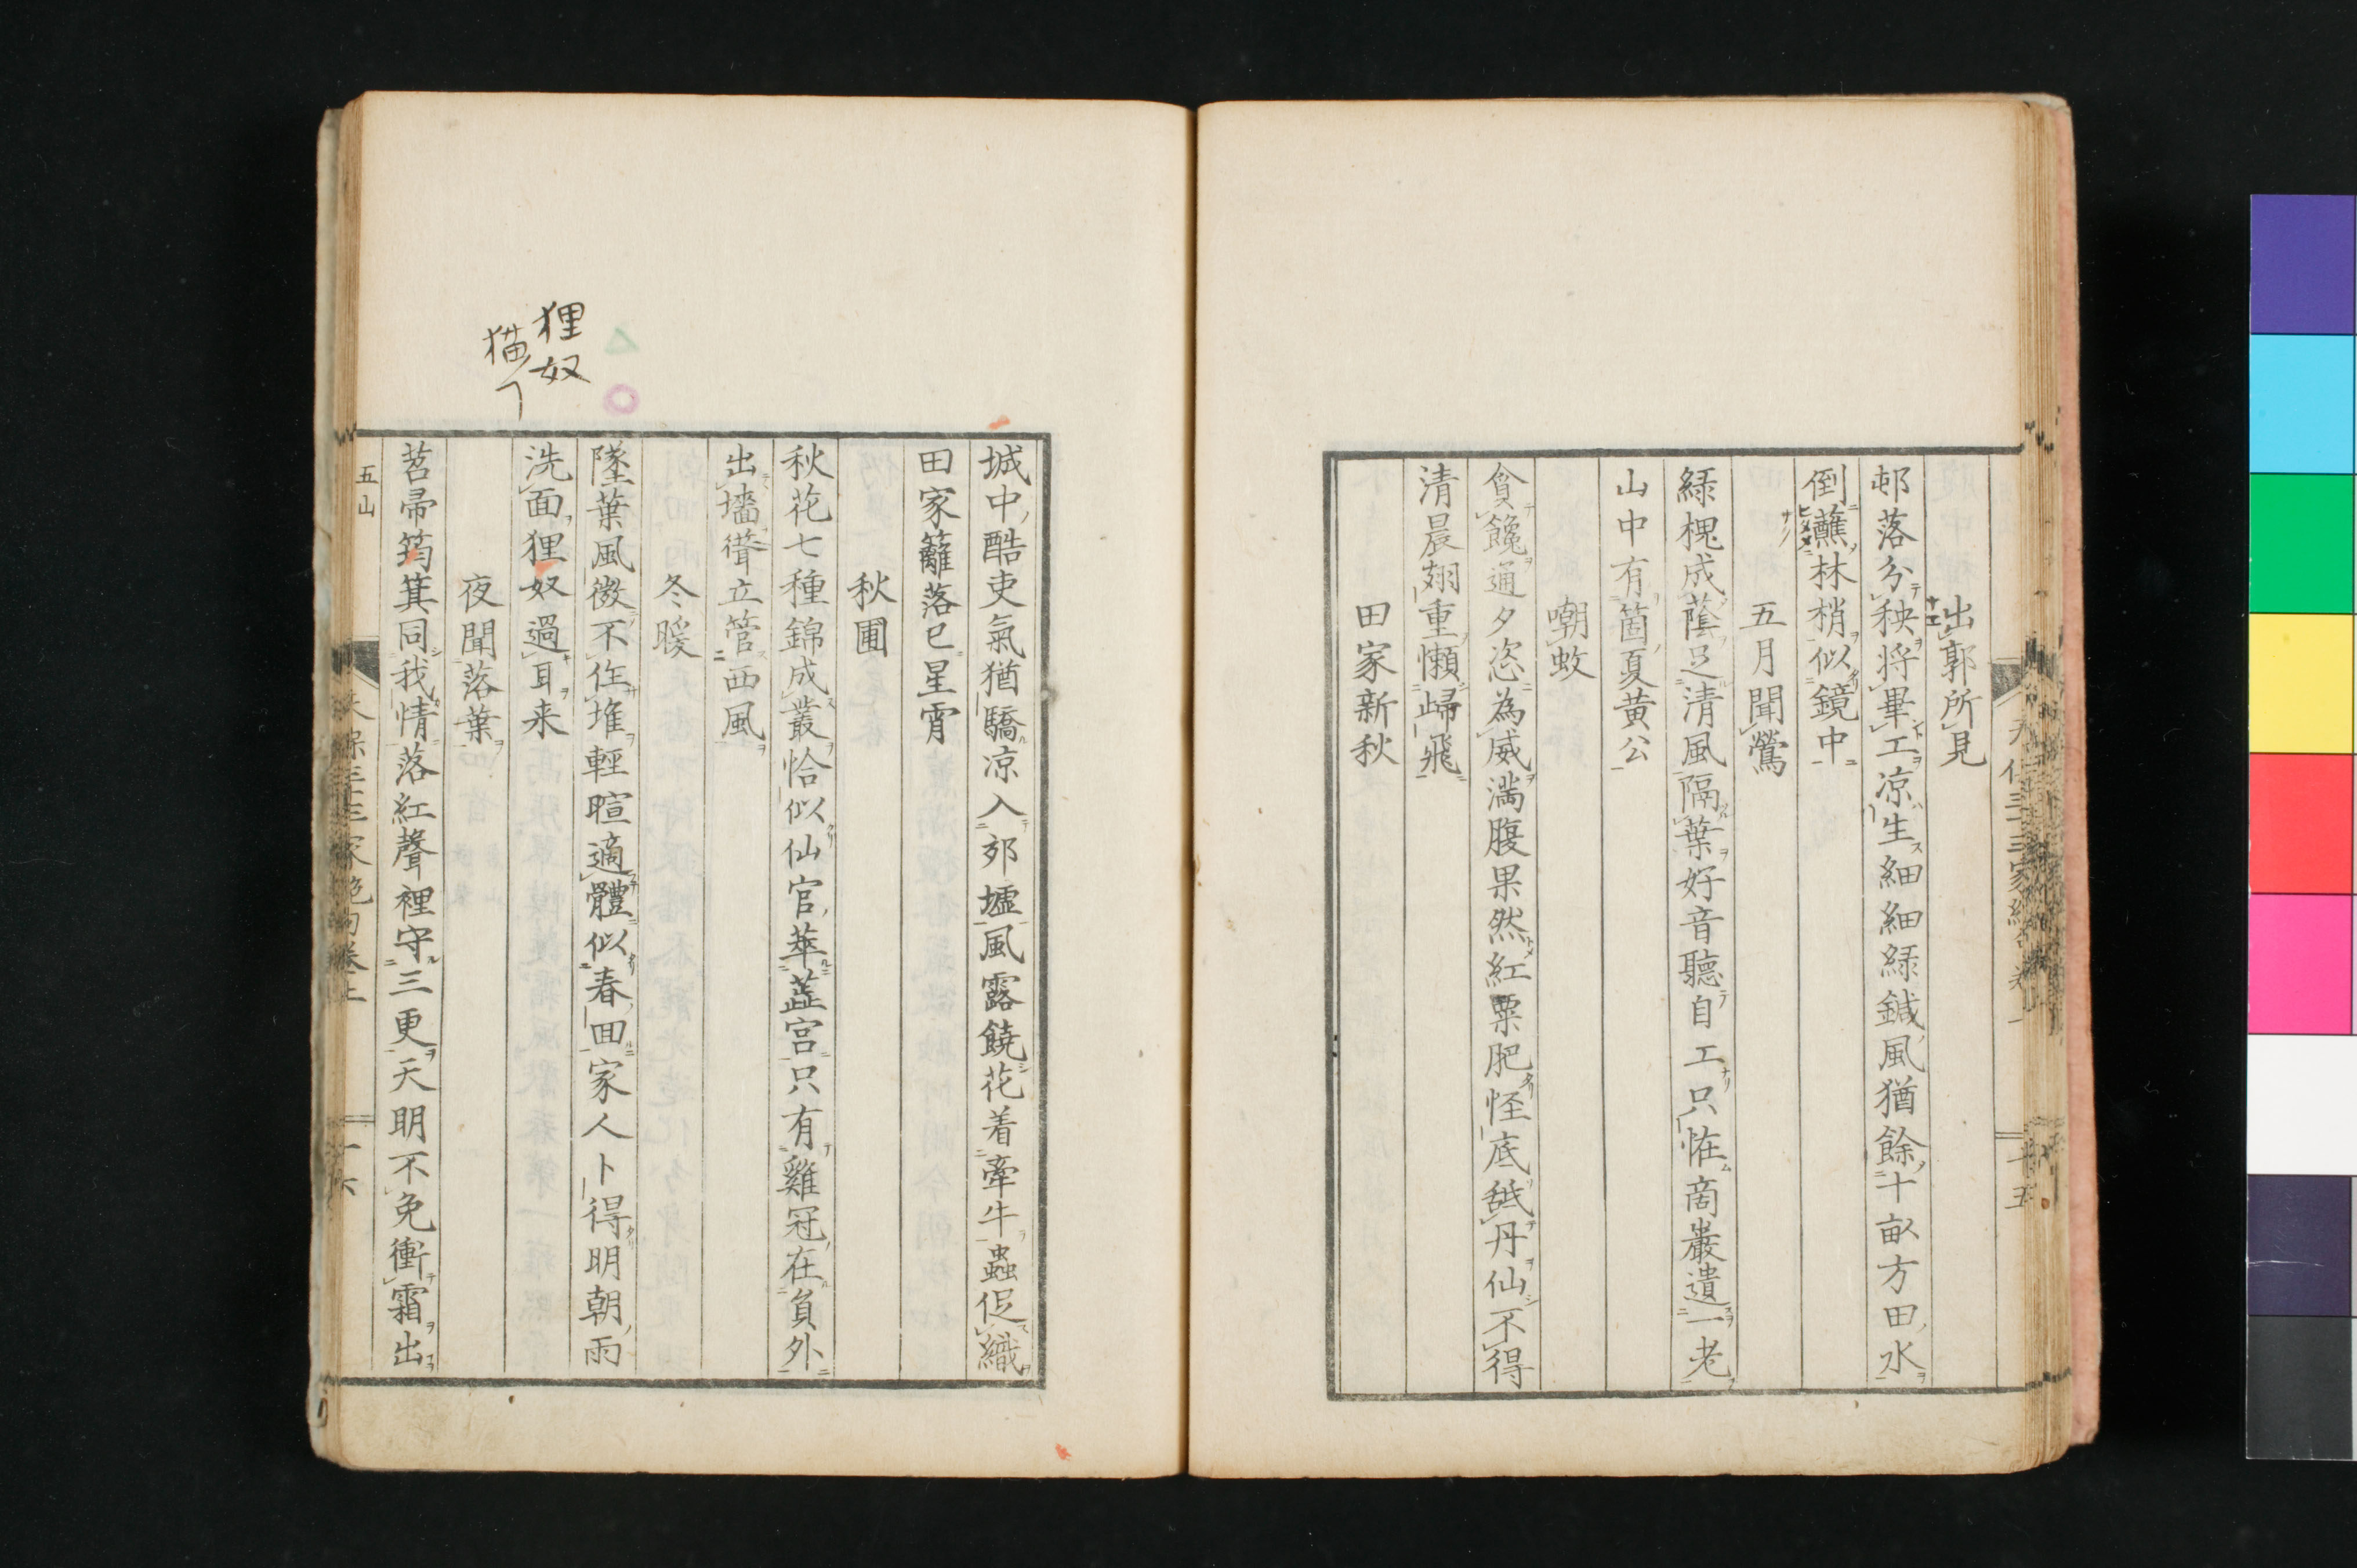 出郭所見
邨落分秧将畢工凉生細細緑鍼風猶餘十畝方田水
倒蘸林梢似鏡中
五月聞鶯
緑槐成蔭足清風隔葉好音聽自工只恠商巖遺一老
山中有箇夏黄公
嘲蚊
貪饞通夕恣為威満腹果然紅粟肥怪底舐丹仙不得
清晨翅重懶歸飛
田家新秋
十五
狸奴
猫ノ
城中酷吏氣猶驕凉入郊墟風露饒花着牽牛蟲促織
田家籬落已星宵
秋圃
秋花七種錦成叢恰似仙官萃蕋宮只有雞冠在負外
出墻聳立管西風
冬暖
墜葉風微不作堆輕暄適體似春回家人卜得明朝雨
洗面狸奴過耳来
夜聞落葉
苕帚筠箕同我情落紅聲裡守三更天明不免衝霜出
五山
天保三十三家絶句巻上
十六